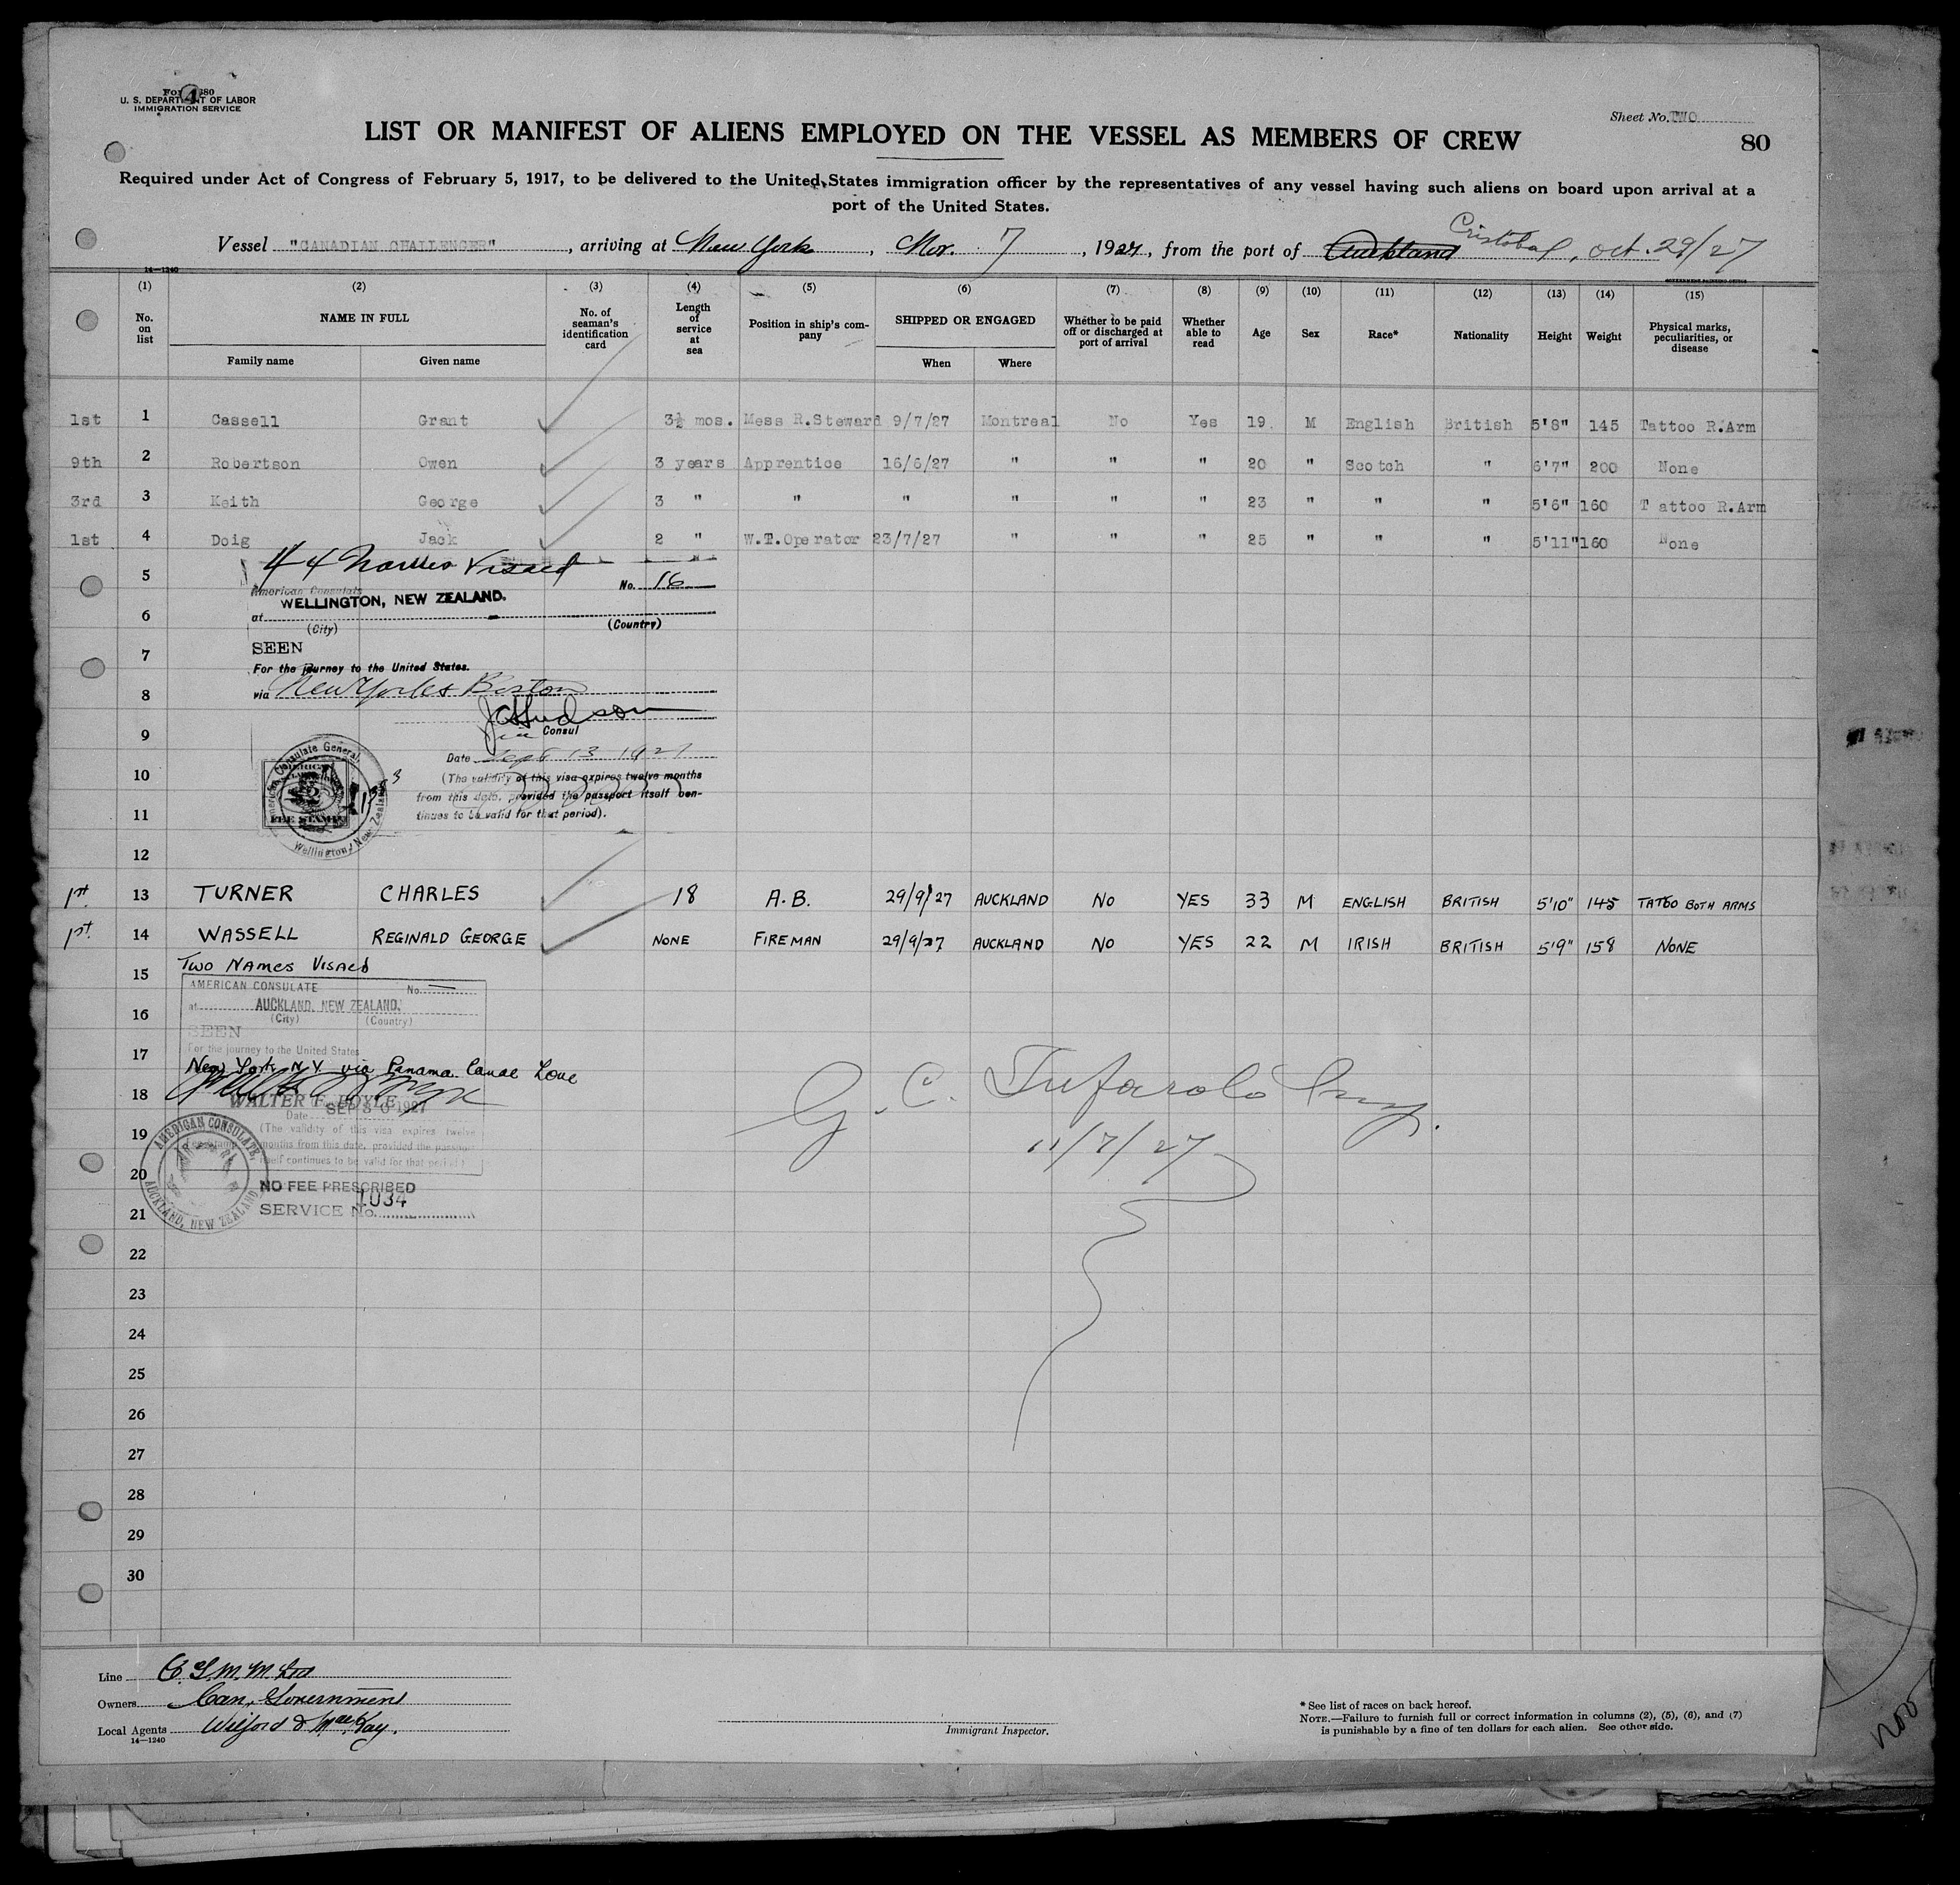 Form 680
U. S. DEPARTMENT OF LABOR
IMMIGRATION SERVICE
Sheet No. TWO
80
LIST OR MANIFEST OF ALIENS EMPLOYED ON THE VESSEL AS MEMBERS OF CREW
Required under Act of Congress of February 5, 1917, to be delivered to the United States immigration officer by the representatives of any vessel having such aliens on board upon arrival at a
port of the United States.
Vessel "CANADIAN CHALLENGER", arriving at New York, Nov. 7, 1927, from the port of Auckland Cristobal, Oct. 29/27
14—1240 GOVERNMENT PRINTING OFFICE
(1) (2) (3) (4) (5) (6) (7) (8) (9) (10) (11) (12) (13) (14) (15)
No. on list NAME IN FULL No. of seaman's identification card Length of service at sea Position in ship's company SHIPPED OR ENGAGED Whether to be paid off or discharged at port of arrival Whether able to read Age Sex Race* Nationality Height Weight Physical marks, peculiarities, or disease
Family name Given name When Where
1st 1 Cassell Grant 3½ mos. Mess R.Steward 9/7/27 Montreal No Yes 19 M English British 5'8" 145 Tattoo R.Arm
9th 2 Robertson Owen 3 years Apprentice 16/6/27 " " " 20 " Scotch " 6'7" 200 None
3rd 3 Keith George 3 " " " " " " 23 " " " 5'6" 160 Tattoo R.Arm
1st 4 Doig Jack 2 " W.T.Operator 23/7/27 " " " 25 " " " 5'11" 160 None
4 Names Visaed
5
American Consulate No. 16
WELLINGTON, NEW ZEALAND.
6 at
(City) (Country)
7 SEEN
For the journey to the United States.
8 via New York & Boston
J C Hudson
9 Vice Consul
Date Sept 13 1927
10 (The validity of this visa expires twelve months
from this date, provided the passport itself con-
11 tinues to be valid for that period).
American Consulate General,
Wellington, New Zealand
FEE STAMP
12
1st. 13 TURNER CHARLES 18 A.B. 29/9/27 AUCKLAND NO YES 33 M ENGLISH BRITISH 5'10" 145 TATOO BOTH ARMS
1st. 14 WASSELL REGINALD GEORGE NONE FIREMAN 29/9/27 AUCKLAND NO YES 22 M IRISH BRITISH 5'9" 158 NONE
15 TWO NAMES VISAED
AMERICAN CONSULATE No.
at AUCKLAND, NEW ZEALAND.
16 (City) (Country)
SEEN
17 For the journey to the United States
New York N.Y. via Panama Canal Zone
18 WALTER F. BOYLE
Date SEP 30 1927
19 (The validity of this visa expires twelve
months from this date, provided the passport
itself continues to be valid for that period.)
20 AMERICAN CONSULATE,
AUCKLAND, NEW ZEALAND
NO FEE PRESCRIBED
21 SERVICE No. 1034
G. C. Tufarolo Insp.
11/7/27
22
23
24
25
26
27
28
29
30
Line C. G. M. M. Ltd
Owners Can. Government
Local Agents Wilford & MacKay.
14—1240
Immigrant Inspector.
* See list of races on back hereof.
NOTE.—Failure to furnish full or correct information in columns (2), (5), (6), and (7)
is punishable by a fine of ten dollars for each alien. See other side.